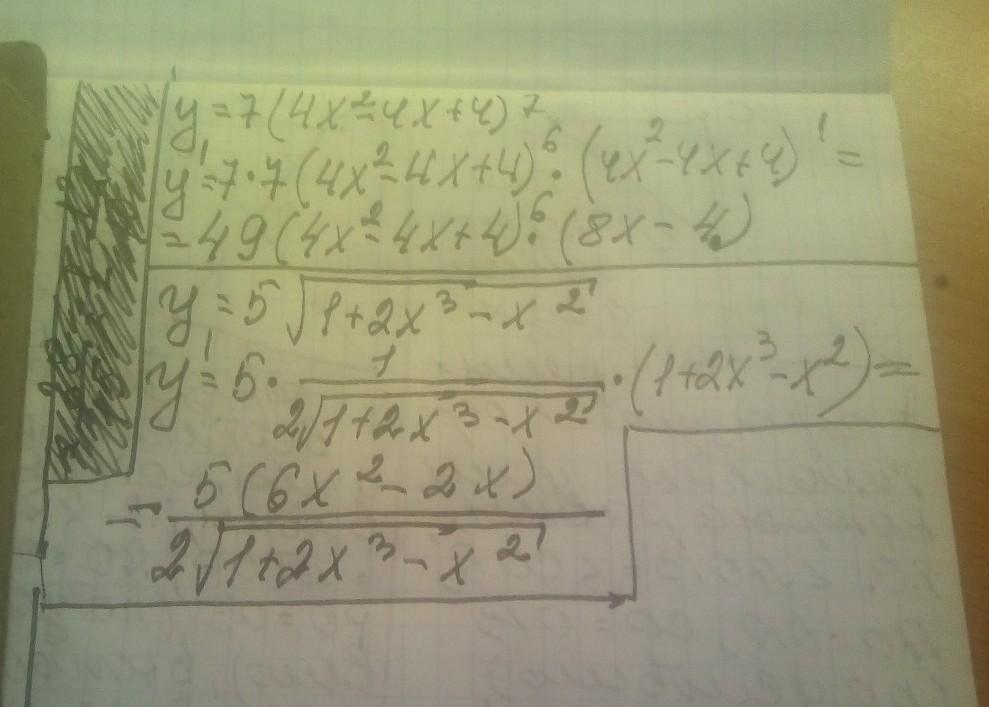 y = 7(4x²-4x+4)⁷
y' = 7·7(4x²-4x+4)⁶·(4x²-4x+4)' =
= 49(4x²-4x+4)⁶·(8x-4)
y = 5√(1+2x³-x²)
y' = 5· 1/(2√(1+2x³-x²)) ·(1+2x³-x²) =
= 5(6x²-2x)/(2√(1+2x³-x²))